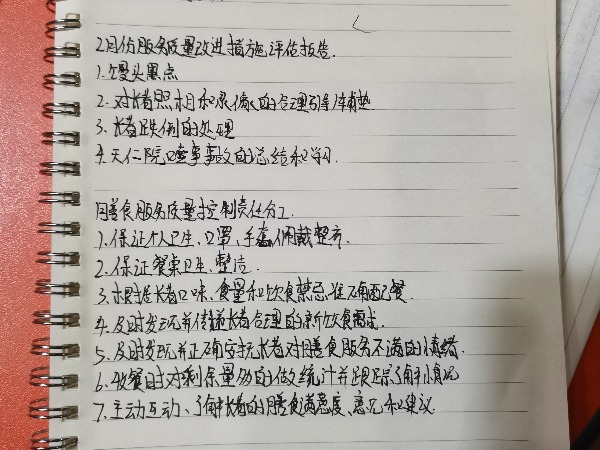 2月份服务质量改进措施评估报告.
1.馒头黑点
2.对长者照相和录像的合理引导铺垫
3.长者跌倒的处理
4.天仁院噎食事故的总结和学习.
膳食服务质量控制责任分工.
1.保证个人卫生、口罩、手套佩戴整齐.
2.保证餐桌卫生、整洁.
3.根据长者口味、食量和饮食禁忌准确配餐.
4.及时发现并传递长者合理的新饮食需求.
5.及时发现并正确安抚长者对膳食服务不满的情绪.
6.收餐时对剩余量多的做统计并跟踪了解情况
7.主动互动、了解长者的膳食满意度、意见和建议.